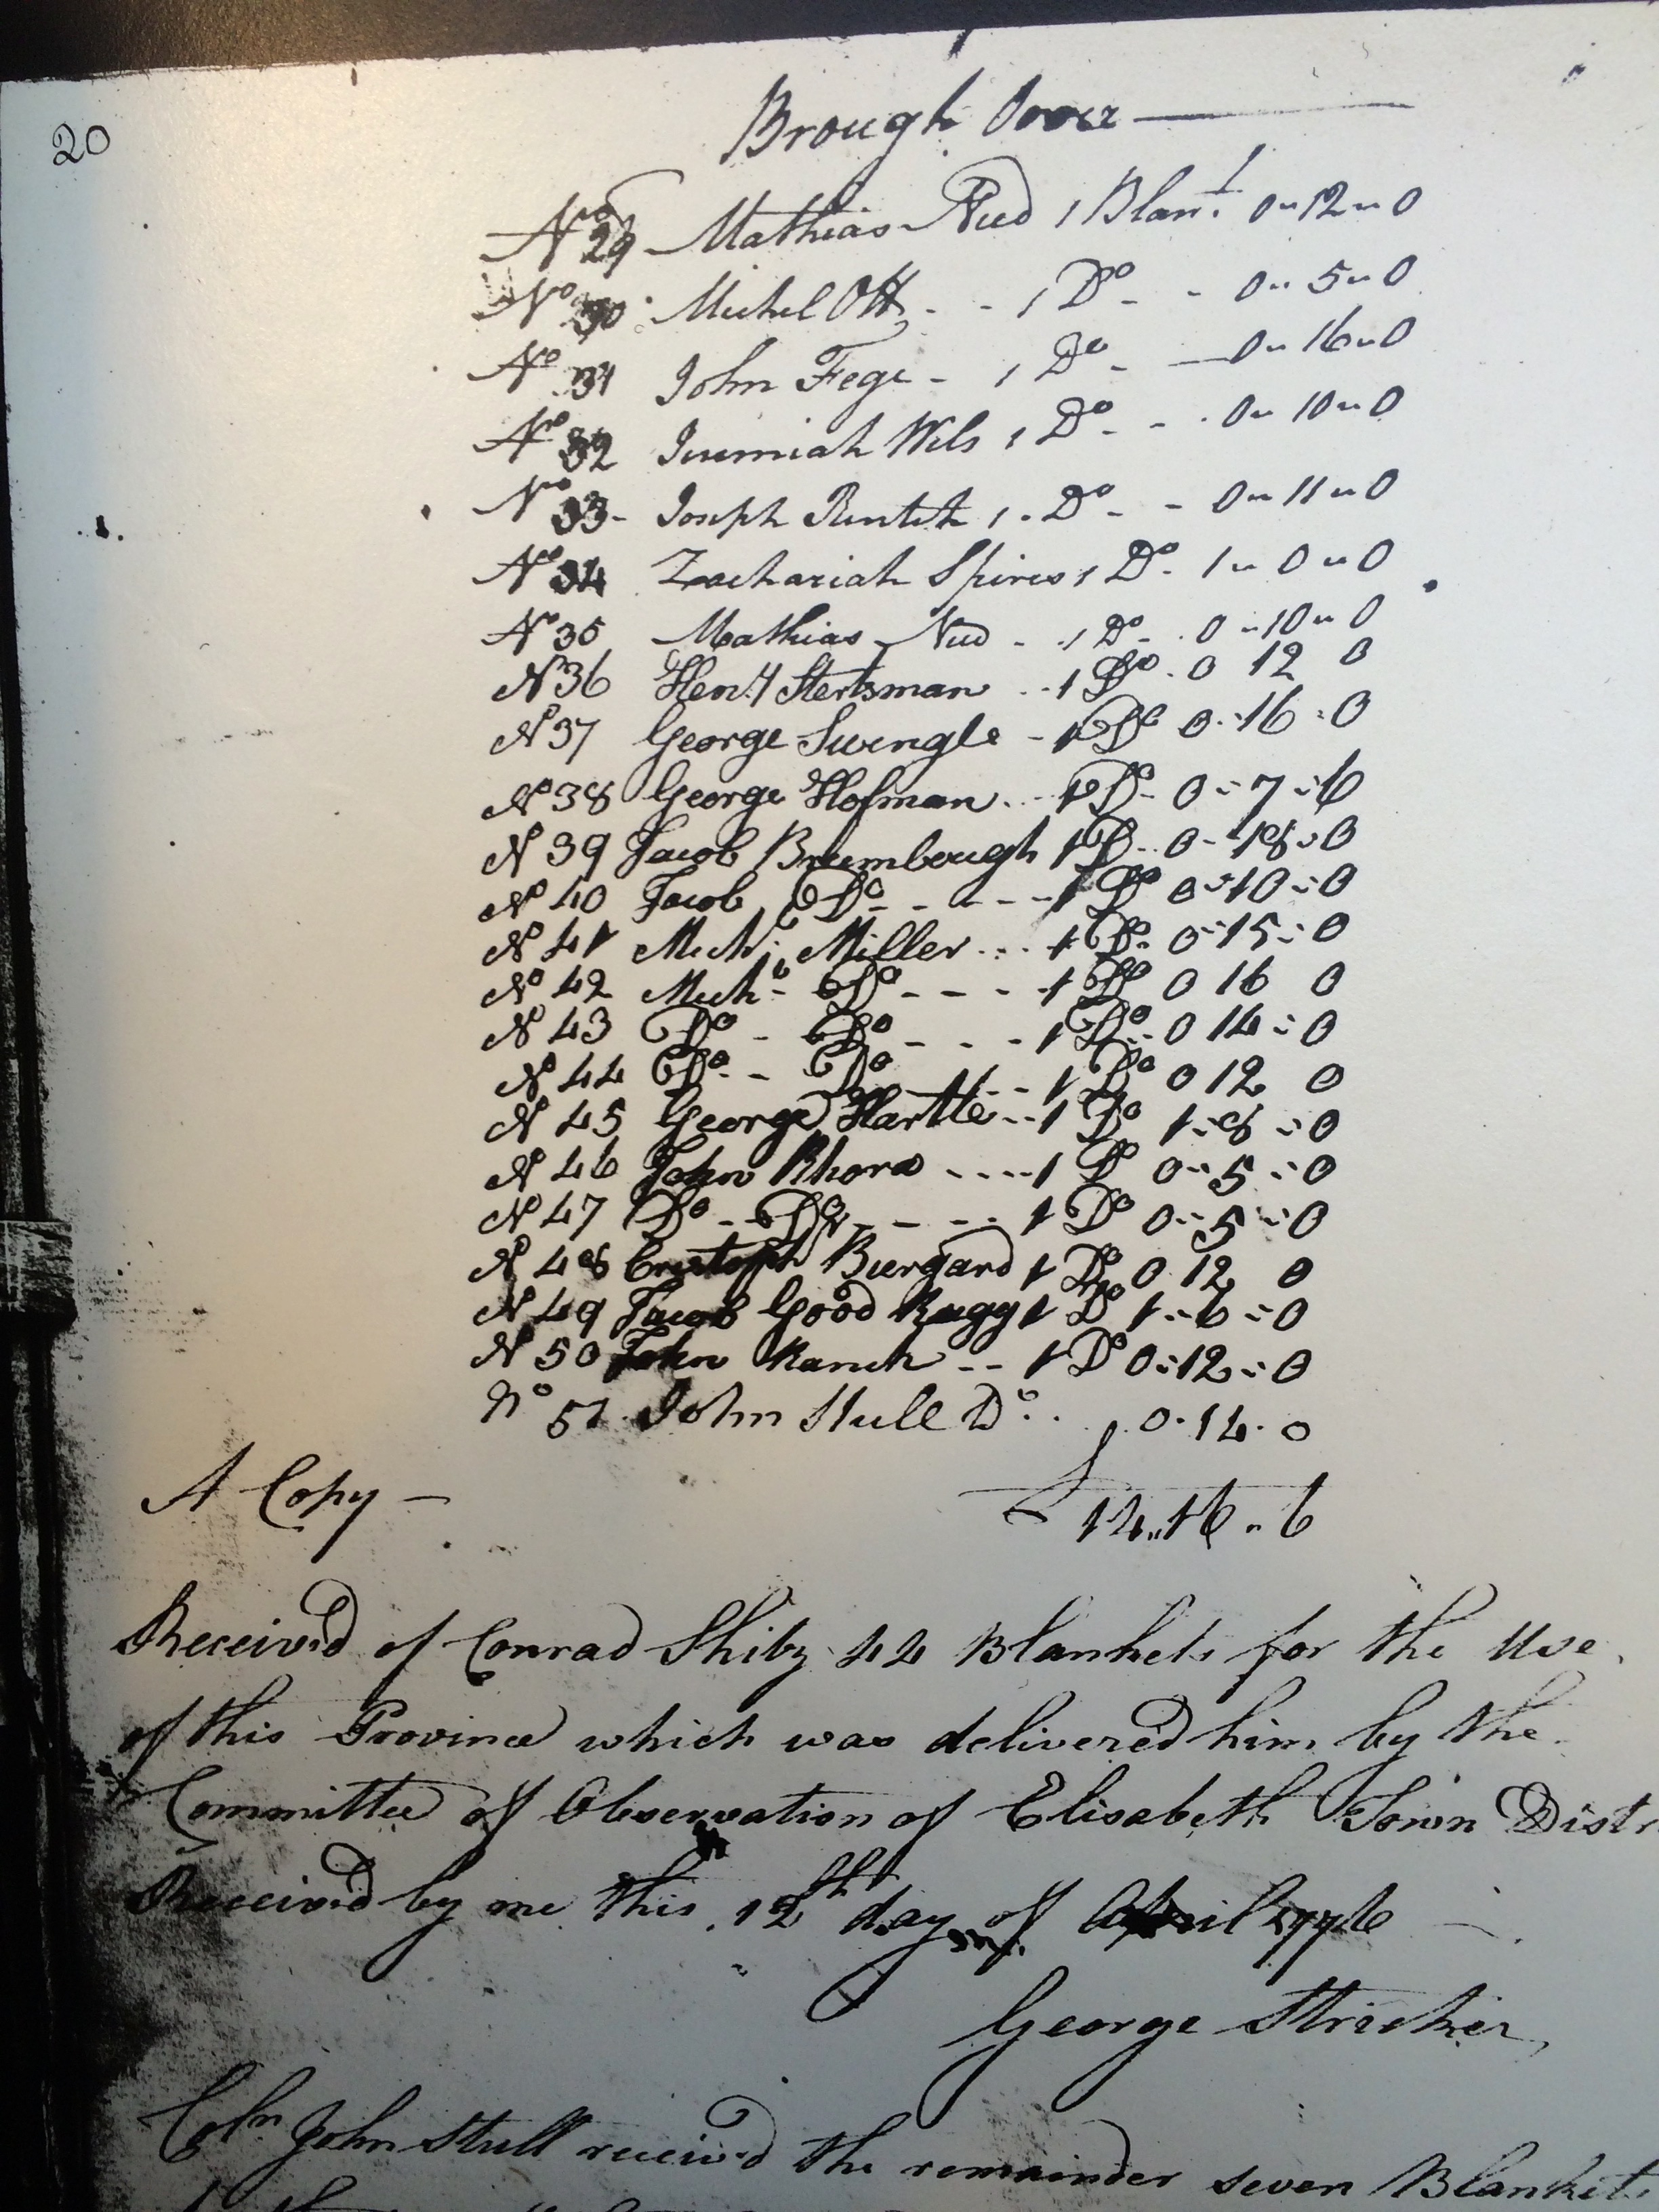 20
Brough Over
No 29 Mathias Nud 1 Blant. 0 " 12 " 0
No 30 Michel Ott - - 1 Do - - 0 " 5 " 0
No 31 John Fege - 1 Do - 0 " 16 " 0
No 32 Jeremiah Wels 1 Do - - 0 " 10 " 0
No 33 - Joseph Rentch 1 - Do - - 0 " 11 " 0
No 34 Zachariah Spires 1 Do - 1 " 0 " 0
No 35 Mathias Nud - 1 Do - 0 " 10 " 0
No 36 Henry Stertsman - - 1 Do - 0 12 0
No 37 George Swengle - 1 Do 0 - 16 : 0
No 38 George Hofman - - 1 Do - 0 - 7 - 6
No 39 Jacob Brumbough 1 Do - 0 - 18 : 0
No 40 Jacob Do - - - - - 1 Do 0 - 10 - 0
No 41 Mich: Miller - - - 1 Do - 0 - 15 - 0
No 42 Mich: Do - - - - 1 Do 0 16 0
No 43 Do - Do - - - 1 Do - 0 14 - 0
No 44 Do - - Do - - - 1 Do 0 12 0
No 45 George Hartle - - 1 Do 1 - 8 - 0
No 46 John Rhora - - - - 1 Do 0 - 5 - 0
No 47 Do - - Do - - - - 1 Do 0 - 5 - 0
No 48 Cristoph Burgard 1 Do 0 12 0
No 49 Jacob Good 1 Do 1 - 6 - 0
No 50 John Ranch - - 1 Do 0 - 12 - 0
No 51. John Stull Do . . 0 . 14 . 0
A Copy - £ 14 " 16 " 6
Receivd of Conrad Shitz 44 Blankets for the Use
of this Province which was delivered him by the
Committee of Observation of Elisabeth Town Distr
Receivd by me this 12th day of April 1776
George Stricker
Coln John Stull receivd the remainder seven Blankets